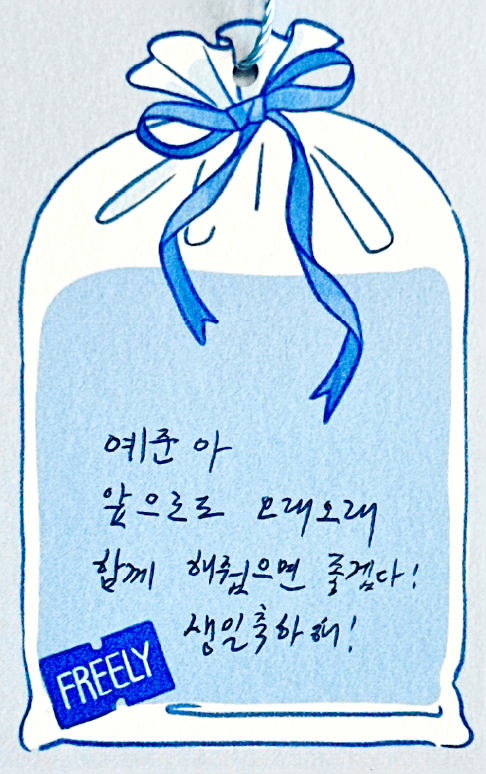 예준아
앞으로도 오래오래
함께 해줬으면 좋겠다!
생일축하해!
FREELY